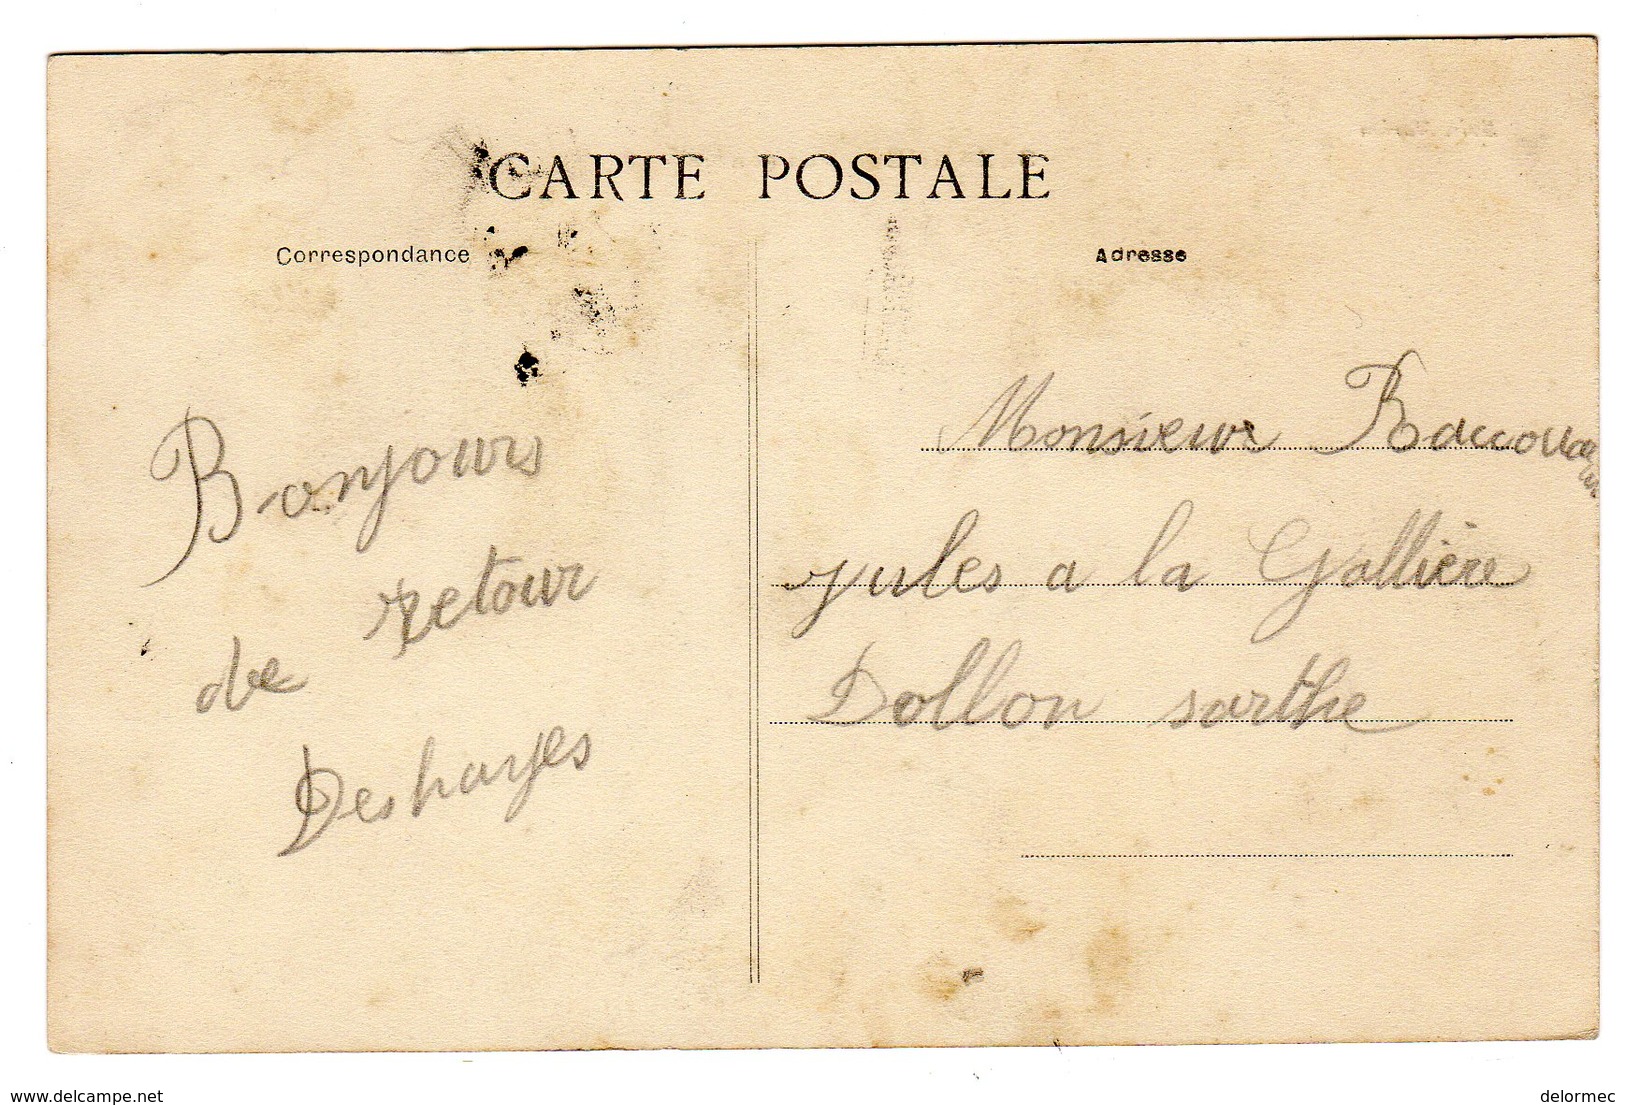 CARTE POSTALE
Correspondance
Adresse
Bonjours
de retour
Deshayes
Monsieur
jules a la Gallière
Dollon sarthe
www.delcampe.net
delormec